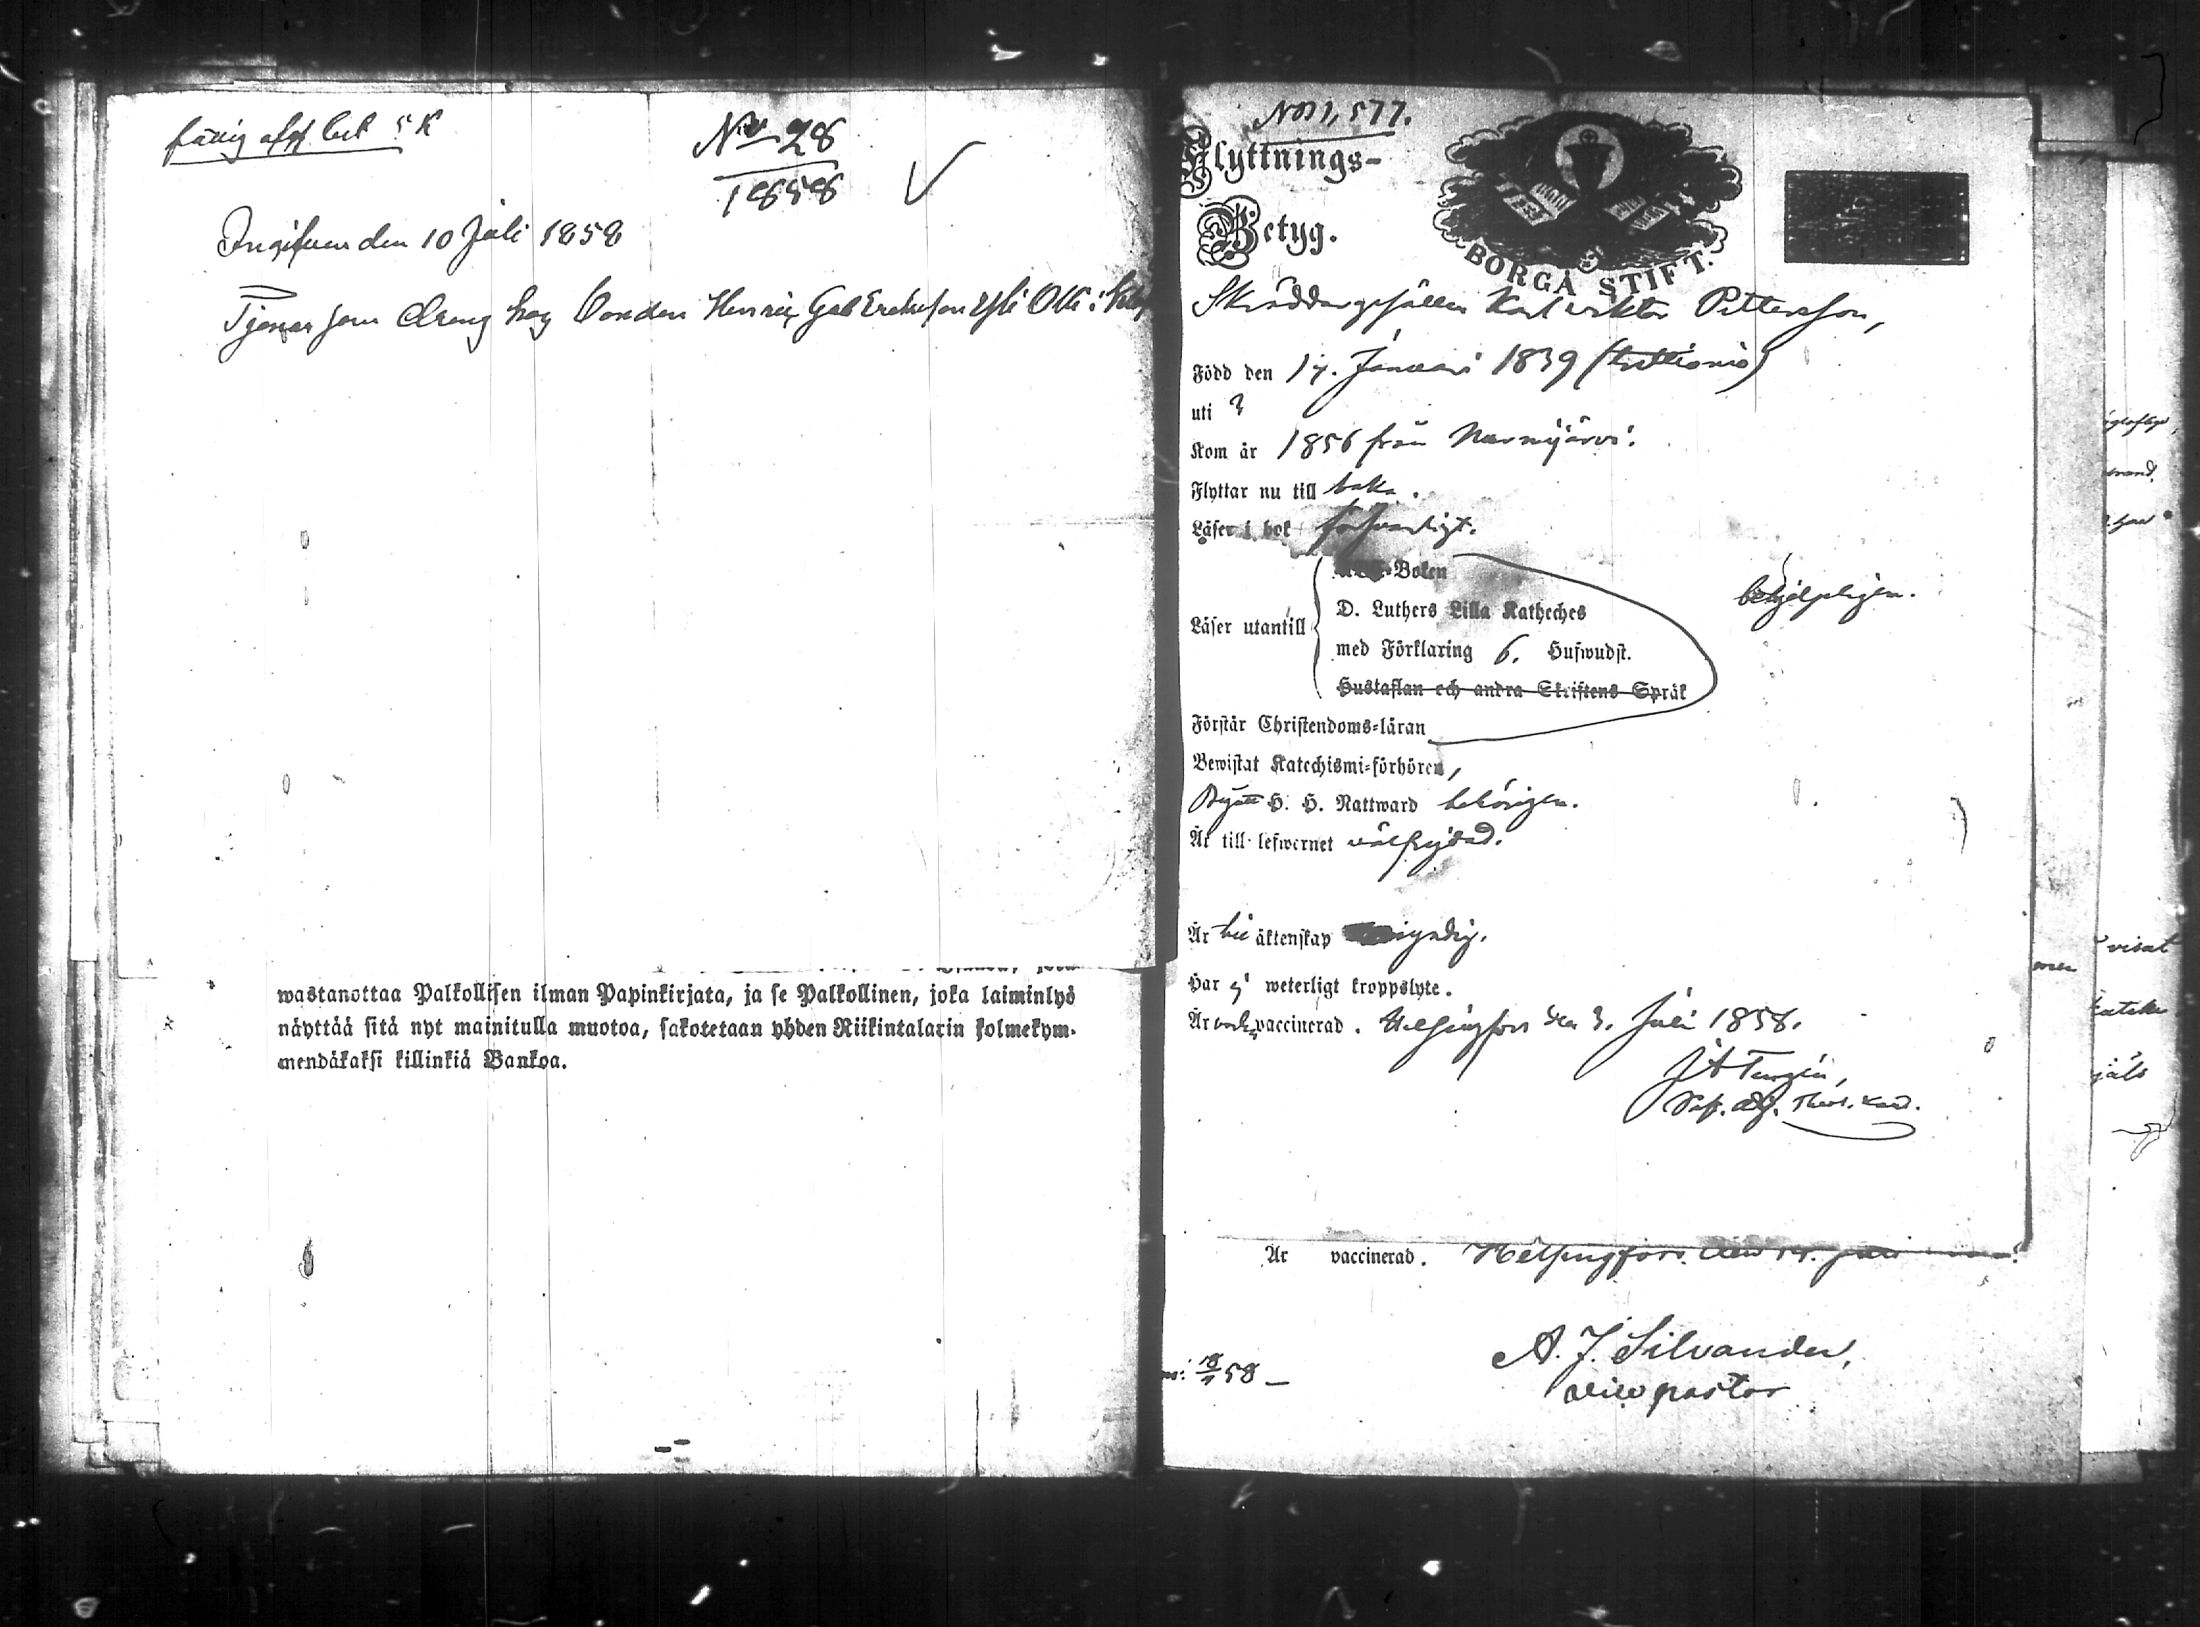 fattig afg. bet. 5 K
No 28
1858
Ingifven den 10 Juli 1858
Tjenar som dreng hos Bonden Henric Gab Erickson Yli Olli i
wastanottaa Palkollisen ilman Papinkirjata, ja se Palkollinen, joka laiminlyö
näyttää sitä nyt mainitulla muotoa, sakotetaan yhden Riikintalarin kolmekym-
mendäkaksi killinkiä Bankoa.
No 1,577.
Flyttnings-
Betyg.
BORGÅ STIFT.
Skräddargesällen Karl Viktor Pettersson,
Född den 17. Januari 1839
uti ?
Kom år 1856 från Nurmijärvi.
Flyttar nu till baka.
Läser i bok försvarligt.
Boken
Läser utantill
D. Luthers Lilla Katheches
med Förklaring 6. Hufwudst.
Hustaflan och andra Skriftens Språk
behjelpligen.
Förstår Christendoms-läran
Bewistat Katechismi-förhören,
Begått H. H. Nattward behörigen.
Är till lefwernet välfrejdad.
Är till äktenskap
Har ej weterligt kroppslyte.
Är vaccinerad. Helsingfors den 3. Juli 1858.
Är vaccinerad. Helsingfors den
A. J. Silvander,
vice pastor
58
visat